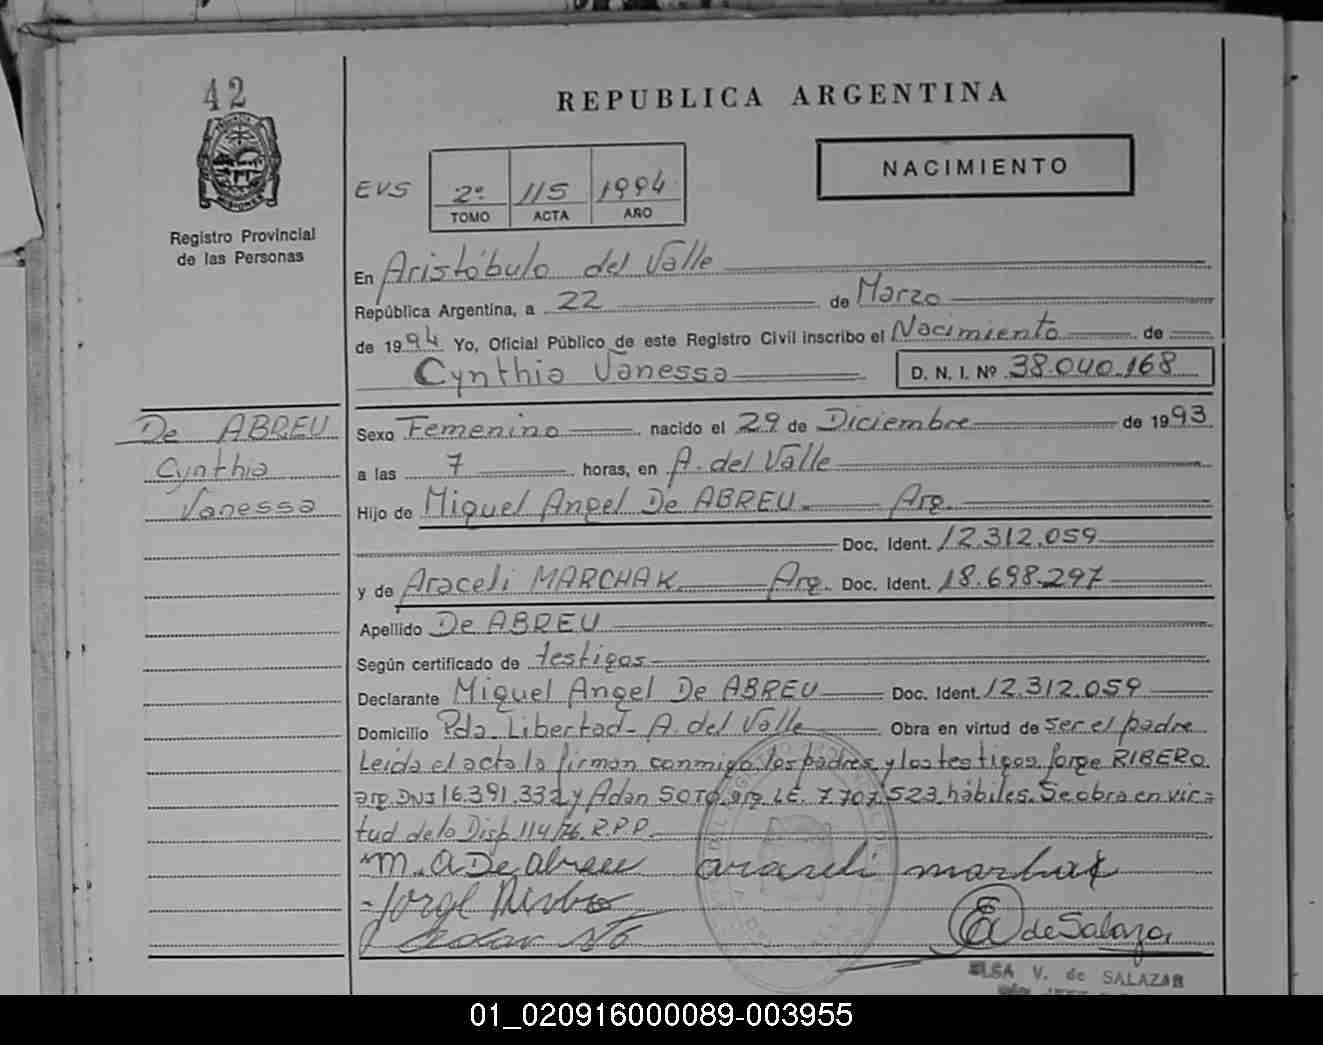 42
REPUBLICA ARGENTINA
NACIMIENTO
EVS 2º 115 1994
TOMO ACTA AÑO
Registro Provincial
de las Personas
En Aristóbulo del Valle
República Argentina, a 22 de Marzo
de 1994 Yo, Oficial Público de este Registro Civil inscribo el Nacimiento de
Cynthia Vanessa D. N. I. Nº 38.040.168
De ABREU
Cynthia
Vanessa
Sexo Femenino nacido el 29 de Diciembre de 1993
a las 7 horas, en A. del Valle
Hijo de Miguel Angel De ABREU. Arg.
Doc. Ident. 12.312.059
y de Araceli MARCHAK Arg. Doc. Ident. 18.698.297
Apellido De ABREU
Según certificado de testigos
Declarante Miguel Angel De ABREU Doc. Ident. 12.312.059
Domicilio Pda. Libertad - A. del Valle Obra en virtud de ser el padre
Leida el acta la firman conmigo, los padres y los testigos Jorge RIBERO
arg. DNI 16.391.332 y Adan SOTO, arg. LE. 7.707.523 hábiles. Se obra en vir-
tud de la Disp. 114/76. R.P.P.
M. A De abreu araceli marchak
Jorge
de Salazar
ELSA V. de SALAZAR
01_020916000089-003955